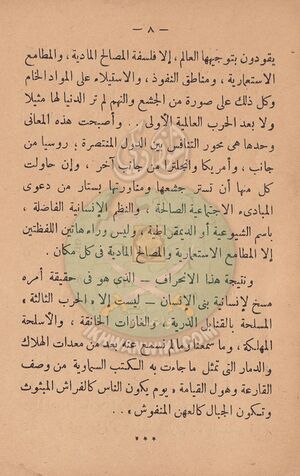 — ٨ —
يقودون بتوجيهها العالم، إلا فلسفة المصالح المادية، والمطامع
الاستعمارية، ومناطق النفوذ، والاستيلاء على المواد الخام
وكل ذلك على صورة من الجشع والنهم لم تر الدنيا لها مثيلا
ولا بعد الحرب العالمية الأولى .. وأصبحت هذه المعانى
وحدها هى محور التنافس بين الدول المنتصرة، روسيا من
جانب، وأمريكا وانجلترا من جانب آخر، وإن حاولت
كل منها أن تستر جشعها ومناورتها بستار من دعوى
المبادىء الاجتماعية الصالحة، والنظم الانسانية الفاضلة،
باسم الشيوعية أو الديمقراطية، وليس وراء هاتين اللفظتين
إلا المطامع الاستعمارية والمصالح المادية فى كل مكان.
ونتيجة هذا الانحراف — الذى هو فى حقيقة أمره
مسخ لإنسانية بنى الإنسان — ليست إلا « الحرب الثالثة »
المسلحة بالقنابل الذرية، والغازات الخانقة، والأسلحة
المهلكة، وما سمعنا وما لم نسمع عنه بعد من معدات الهلاك
والدمار التى تمثل ما جاءت به الكتب السماوية من وصف
القارعة وهول القيامة « يوم يكون الناس كالفراش المبثوث
وتكون الجبال كالعهن المنفوش » ..
***